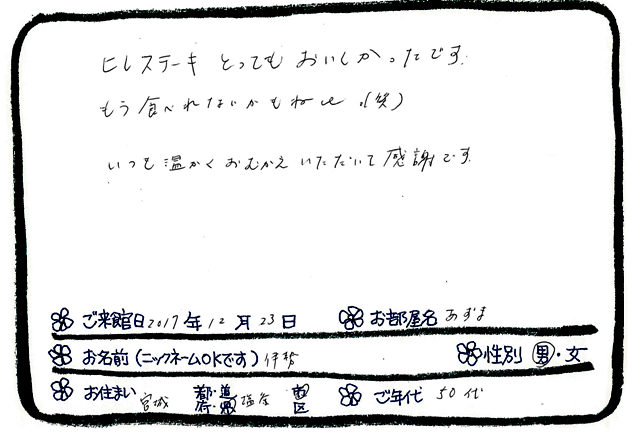 ヒレステーキ とっても おいしかったです。
もう 食べれないかもね 。(笑)
いつも 温かく おむかえ いただいて 感謝です。
ご来館日 2017年 12月 23日 お部屋名 あずま
お名前(ニックネームOKです) 伊勢 性別 男・女
お住まい 宮城 都・道 府・県 塩釜 市 区 ご年代 50代